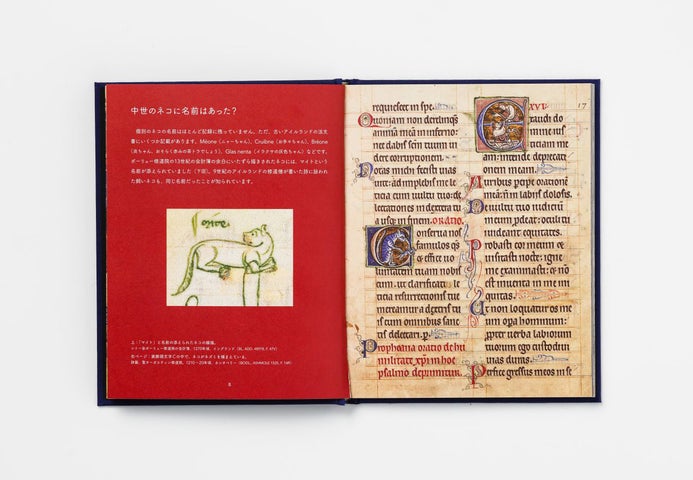 中世のネコに名前はあった？
個別のネコの名前はほとんど記録に残っていません。ただ、古いアイルランドの法文
書にいくつか記載があります。Méone（ムャーちゃん）、Cruibne（おててちゃん）、Bréone
（炎ちゃん、おそらく赤みの茶トラでしょう）、Glas nenta（イラクサの灰色ちゃん）などです。
ボーリュー修道院の13世紀の会計簿の余白にいたずら描きされたネコには、マイトという
名前が添えられていました（下図）。9世紀のアイルランドの修道僧が書いた詩に詠われ
た飼いネコも、同じ名前だったことが知られています。
上：「マイト」と名前の添えられたネコの描画。
8
requiescet in spe.
Quoniam non derelinqs
animā meā in inferno:
nec dabis scm tuum ui
dere corruptionem.
Notas michi fecisti uias
uite: adimplebis me le
ticia cum uultu tuo: de
lectationes in dextera tu
a usq; in finem. oratio.
Conserua nos
famulos qs
ciclo. ut clarificati le
ticia resurrectionis tue
mereamur a dextris tu
is cum omnibus sanctis delectari.
Propheania oratio de hu
militate xpi in hoc
psalmo depinnitur.
XVI.
17
am: intende deprecati
onem meam.
Auribus percipe oratione
meā: nō in labiis dolosis.
De uultu tuo iudicium
meum prodeat: oculi tu
uideant equitates.
Probasti cor meum et
uisitasti nocte: igne
me examinasti. et nō
est inuenta in me ini
quitas.
Ut non loquatur os me
um opa hominum:
propter uerba labiorum
tuorum ego custodiui
uias duras.
Perfice gressus meos in se